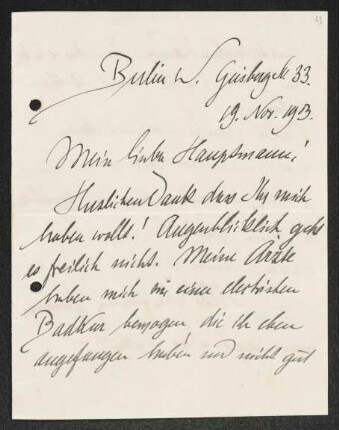 Berlin W. Geisbergstr. 33.
19. Nov. 1913.
Mein lieber Hauptmann!
Herzlichen Dank dass Ihr mich
haben wollt! Augenblicklich geht
es freilich nicht. Meine Ärzte
haben mich in eine electrischen
Badkur bewogen, die ich eben
angefangen habe, und nicht gut